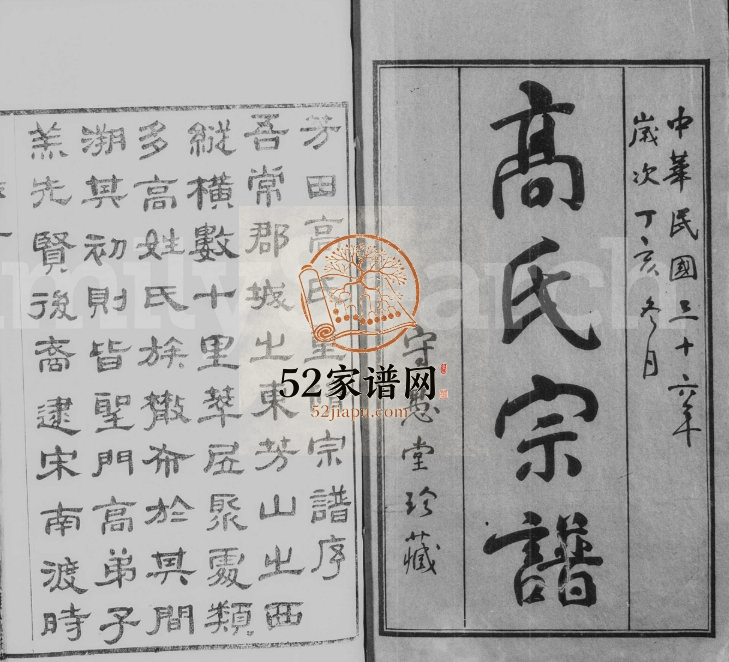 中華民國三十六年
歲次丁亥冬月
高氏宗譜
守愚堂珍藏
芳田高氏重 宗譜序
吾常郡城之東芳山之西
縱橫數十里萃居聚處類
多高姓氏族散布於其間
溯其初則皆聖門高弟子
羔先賢後裔逮宋南渡時
52家谱网
52jiapu.com